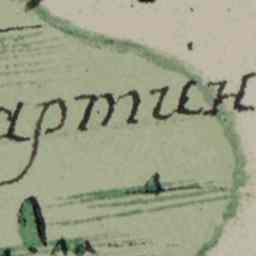 артин